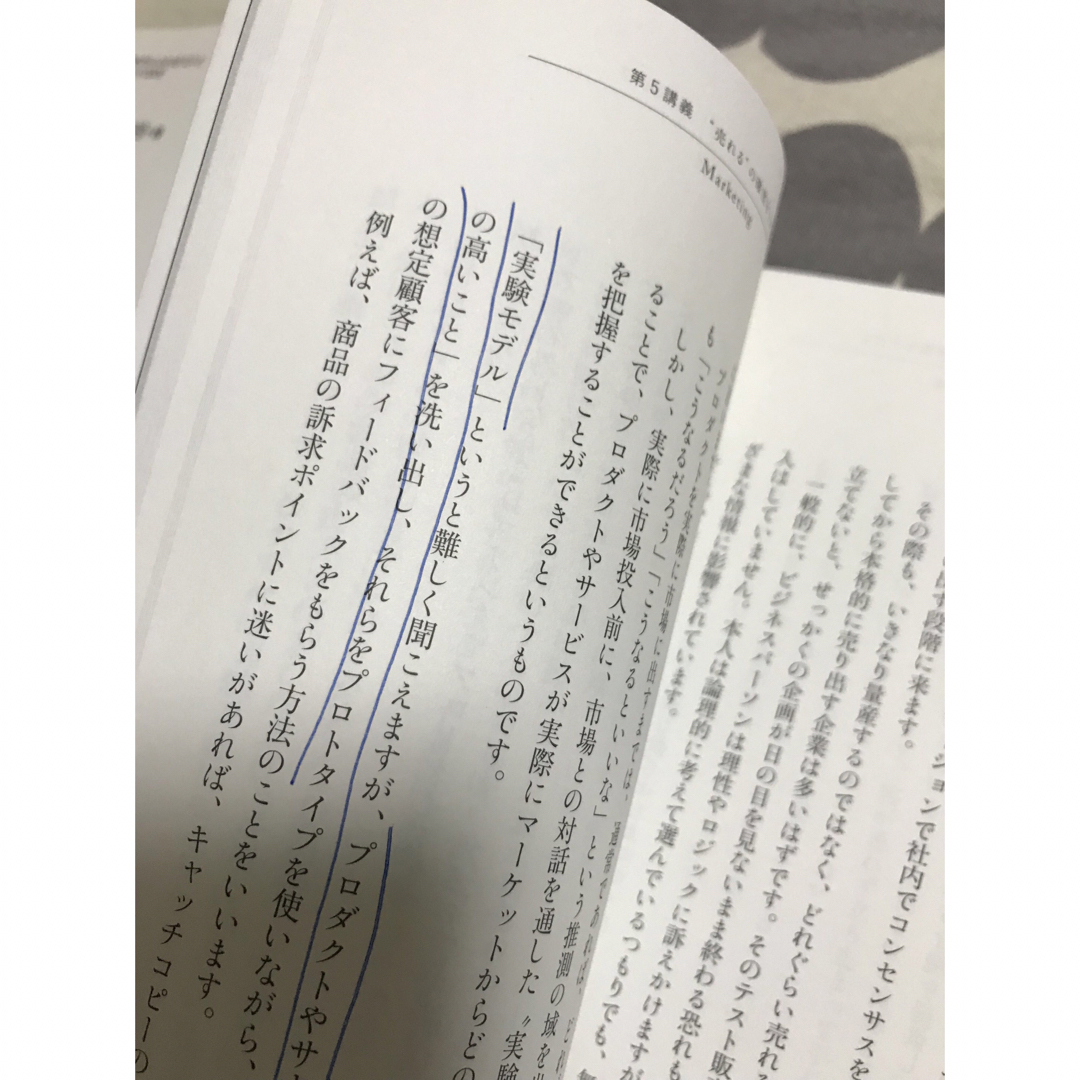 第5講義 “売れる”の
Marketing
ョンで社内でコンセンサスを
段階に来ます。
その際も、いきなり量産するのではなく、どれぐらい売れる
してから本格的に売り出す企業は多いはずです。そのテスト販
立てないと、せっかくの企画が日の目を見ないまま終わる恐れも
一般的に、ビジネスパーソンは理性やロジックに訴えかけますが
人はしていません。本人は論理的に考えて選んでいるつもりでも、
ざまな情報に影響されています。
プロダクトを実際に市場に出すまでは、通常であれば、
も「こうなるだろう」「こうなるといいな」という推測の域を
しかし、実際に市場投入前に、市場との対話を通した“実験
ることで、プロダクトやサービスが実際にマーケットからどの
を把握することができるというものです。
「実験モデル」というと難しく聞こえますが、プロダクトやサ
の高いこと」を洗い出し、それらをプロトタイプを使いながら、
の想定顧客にフィードバックをもらう方法のことをいいます。
例えば、商品の訴求ポイントに迷いがあれば、キャッチコピーの